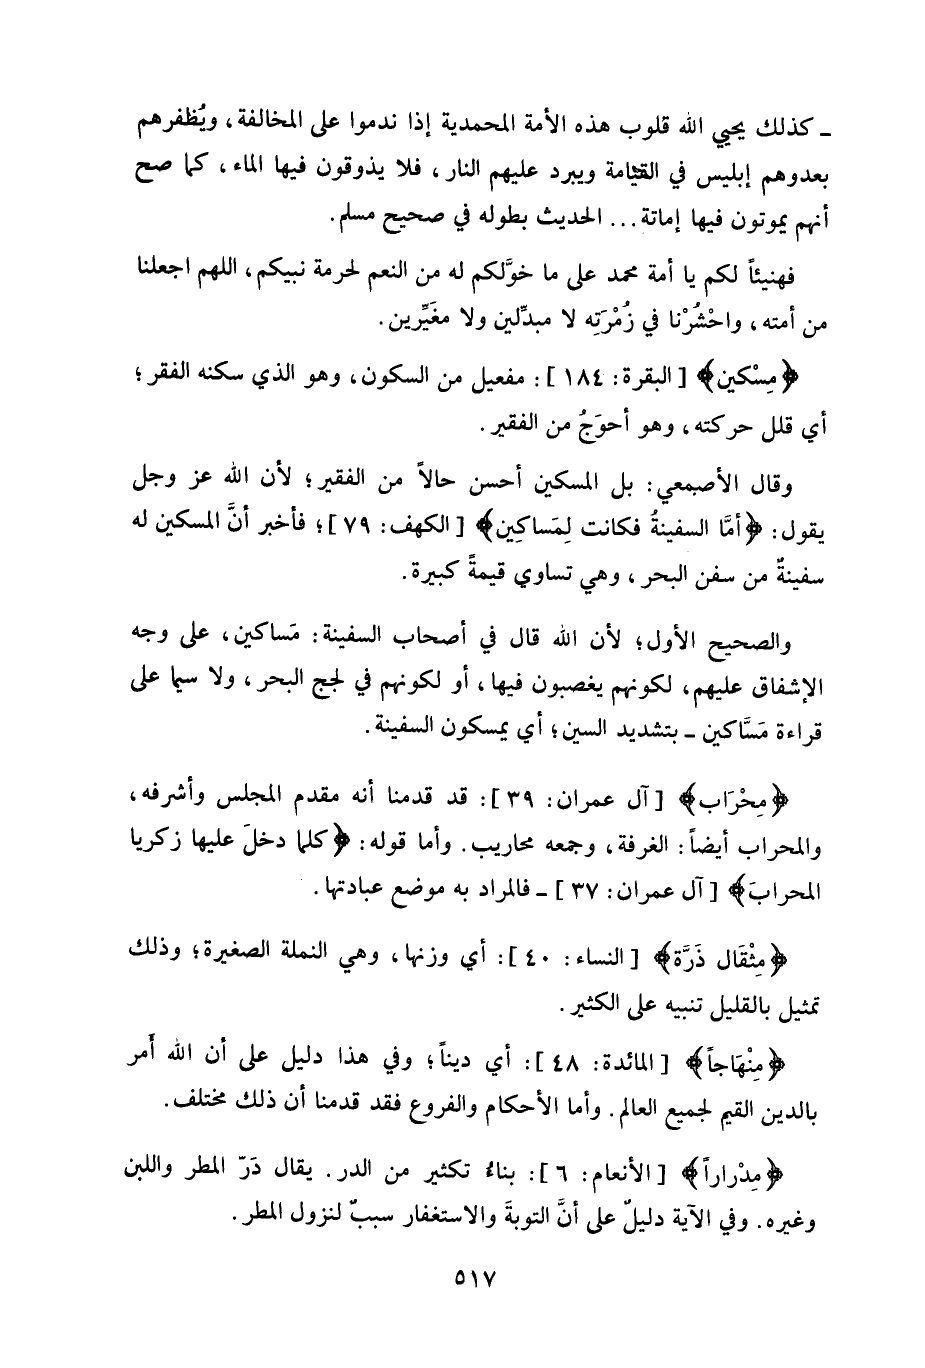 ـ كذلك يحيي الله قلوب هذه الأمة المحمدية إذا ندموا على المخالفة، ويُظفرهم
بعدوهم إبليس في القيامة ويبرد عليهم النار، فلا يذوقون فيها الماء، كما صح
أنهم يموتون فيها إماتة... الحديث بطوله في صحيح مسلم.
فهنيئاً لكم يا أمة محمد على ما خوَّلكم له من النعم لحرمة نبيكم، اللهم اجعلنا
من أمته، واحْشُرْنا في زُمْرَتِه لا مبدِّلين ولا مغَيِّرين.
﴿مِسْكين﴾ [البقرة: ١٨٤]: مفعيل من السكون، وهو الذي سكنه الفقر؛
أي قلل حركته، وهو أحوَجُ من الفقير.
وقال الأصمعي: بل المسكين أحسن حالاً من الفقير؛ لأن الله عز وجل
يقول: ﴿أمَّا السفينةُ فكانت لِمَساكِين﴾ [الكهف: ٧٩]؛ فأخبر أنَّ المسكين له
سفينةٌ من سفن البحر، وهي تساوي قيمةً كبيرة.
والصحيح الأول؛ لأن الله قال في أصحاب السفينة: مَساكين، على وجه
الإشفاق عليهم، لكونهم يغصبون فيها، أو لكونهم في لجج البحر، ولا سيما على
قراءة مَسَّاكين ـ بتشديد السين؛ أي يمسكون السفينة.
﴿مِحْرَاب﴾ [آل عمران: ٣٩]: قد قدمنا أنه مقدم المجلس وأشرفه،
والمحراب أيضاً: الغرفة، وجمعه محاريب. وأما قوله: ﴿كلما دخلَ عليها زكريا
المحرابَ﴾ [آل عمران: ٣٧] ـ فالمراد به موضع عبادتها.
﴿مِثْقَال ذَرَّة﴾ [النساء: ٤٠]: أي وزنها، وهي النملة الصغيرة؛ وذلك
تمثيل بالقليل تنبيه على الكثير.
﴿مِنْهَاجاً﴾ [المائدة: ٤٨]: أي ديناً؛ وفي هذا دليل على أن الله أَمر
بالدين القيم لجميع العالم. وأما الأحكام والفروع فقد قدمنا أن ذلك مختلف.
﴿مِدْراراً﴾ [الأنعام: ٦]: بناءُ تكثير من الدر. يقال دَرّ المطر واللبن
وغيره. وفي الآية دليلٌ على أنَّ التوبةَ والاستغفار سببٌ لنزول المطر.
٥١٧